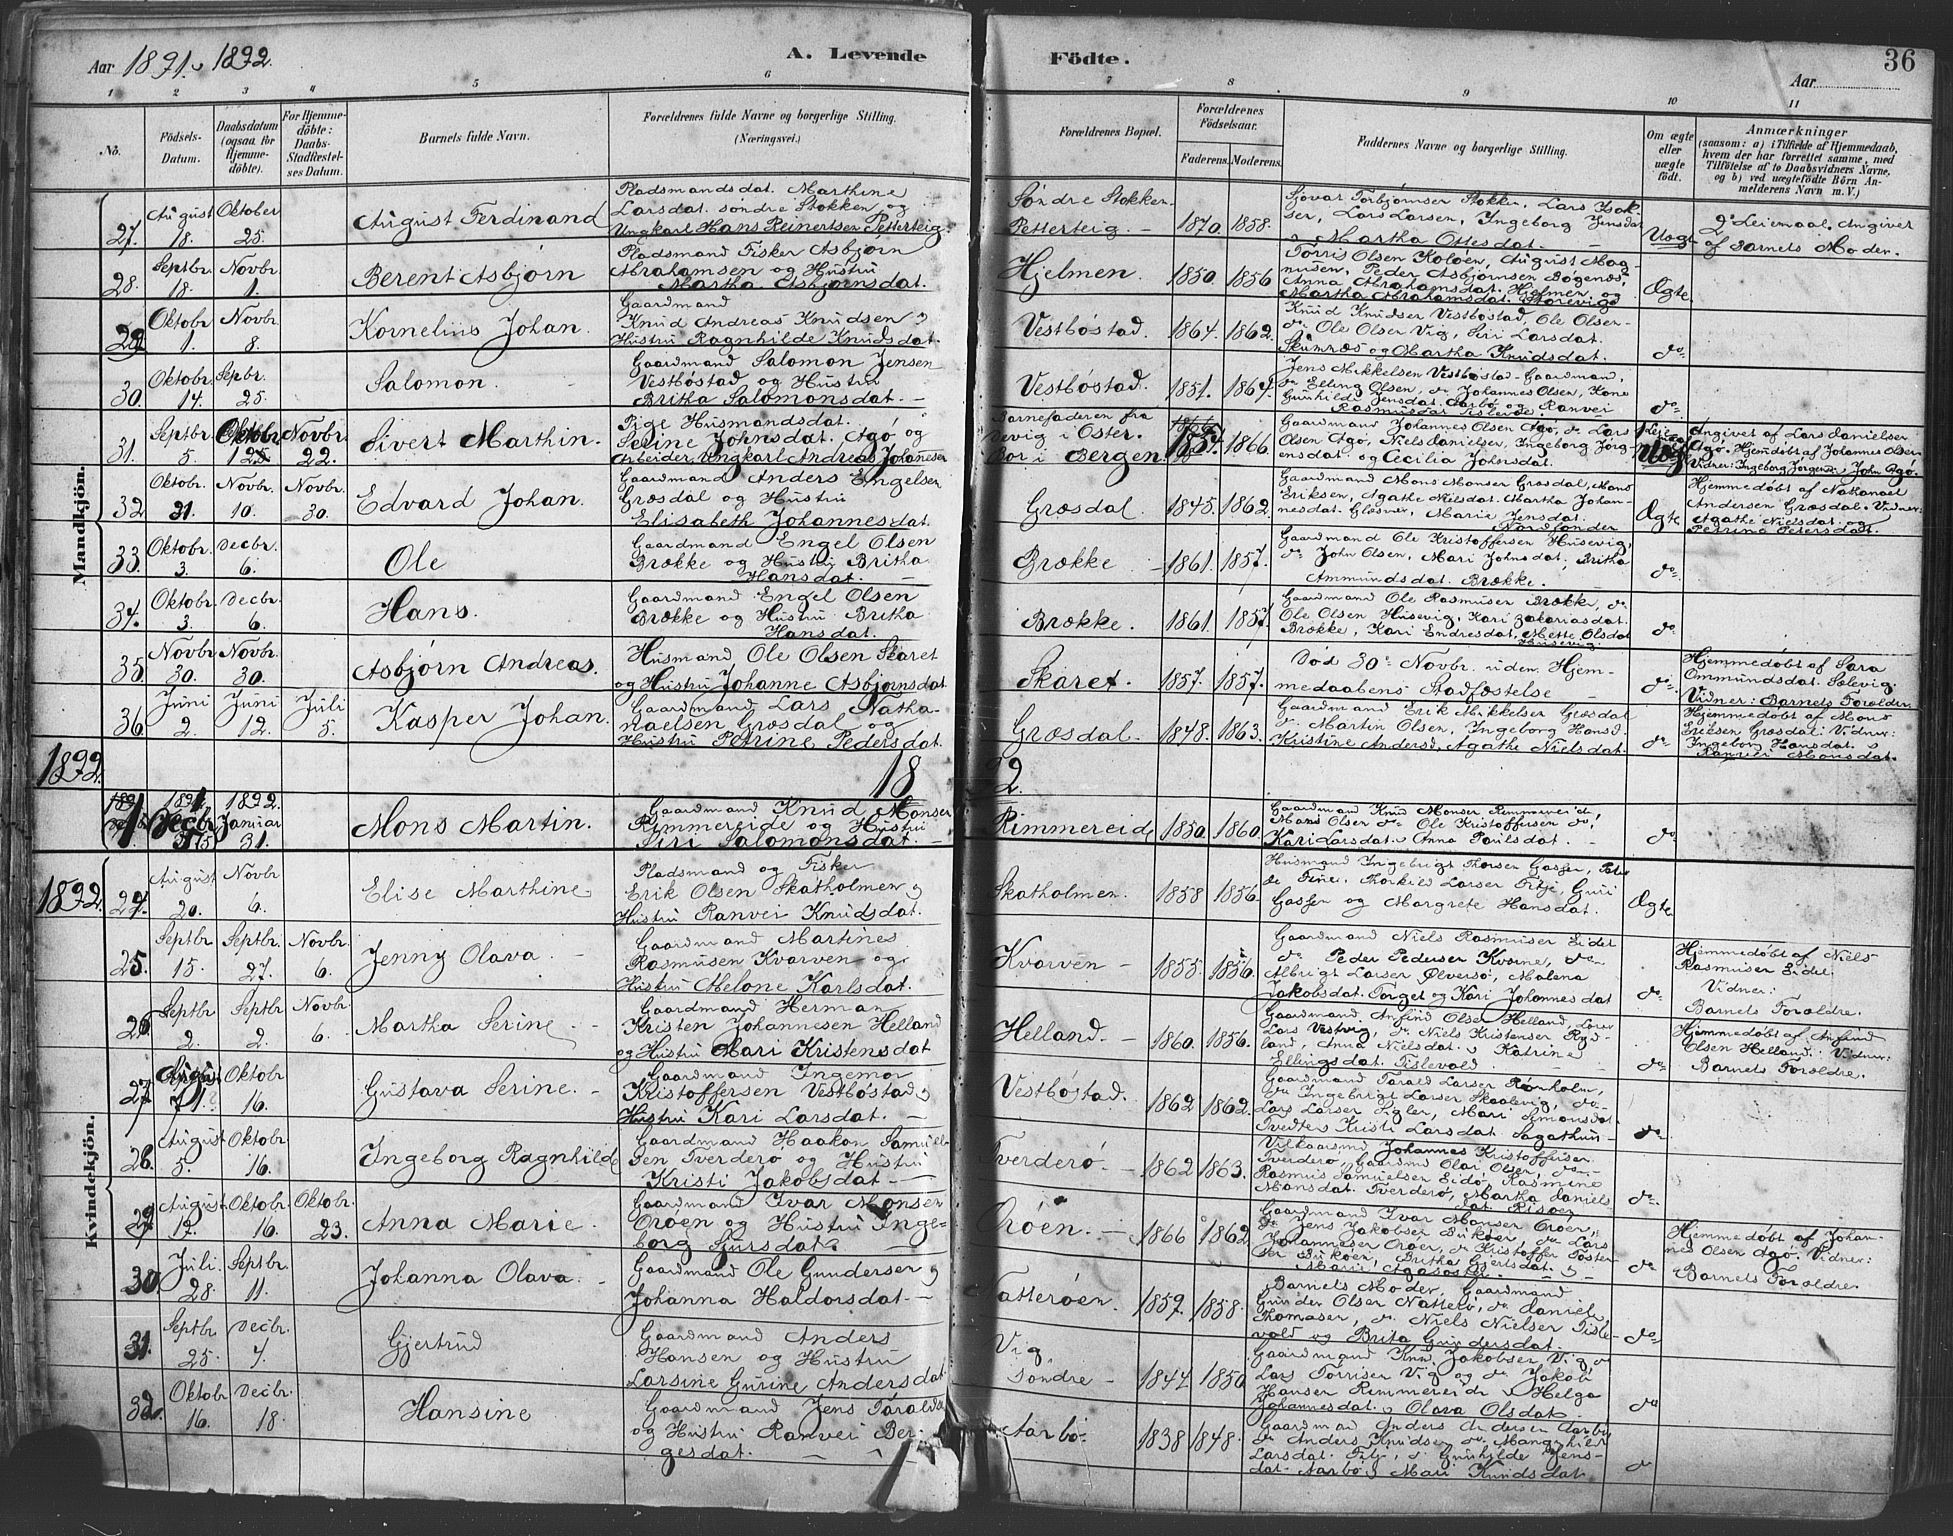 Aar 1891. 1892.
A. Levende
Födte.
Aar
36
1 2 3 4 5 6 7 8 9 10 11
No.
Födsels-Datum.
Daabsdatum (ogsaa for Hjemme-döbte).
For Hjemme-döbte: Daabs-Stadfæstel-ses Datum.
Barnets fulde Navn.
Forældrenes fulde Navne og borgerlige Stilling.
(Næringsvei.)
Forældrenes Bopæl.
Forældrenes Födselsaar.
Faderens. Moderens.
Faddernes Navne og borgerlige Stilling.
Om ægte eller uægte födt.
Anmærkninger
(saasom: a) i Tilfælde af Hjemmedaab,
hvem der har forrettet samme, med
Tilföielse af to Daabsvidners Navne,
og b) ved uægtefödte Börn An-
melderens Navn m. V.)
Mandkjön.
27. August 18. Oktober 25. August Ferdinand
Pladsmandsdat. Marthine
Larsdat. søndre Stokken og
Ungkarl Hans Reinertsen Petterteig.
Søndre Stokken.
Petterteig. 1870. 1858.
Ingeborg Jensdat
Martha Ottesdat.
Uægt
2det Leiemaal. Angivet
af Barnets Moder.
28. Septbr. 18. Novbr. 1. Berent Asbjørn
Pladsmand Fisker Asbjørn
Abrahamsen og Hustru
Martha Asbjørnsdat.
Hjelmen. 1850. 1856
Torris Olsen Koløen, August Mag-
nusen, Peder Asbjørnsen Bøgenæs,
Anna Abrahamsdat. Hjelmen og
Martha Abrahamsdat. Storevig
Ægte
29. Oktobr. 1. Novbr. 8. Kornelius Johan.
Gaardmand
Knud Andreas Knudsen og
Hustru Ragnhilde Knudsdat.
Vestbøstad. 1864. 1862.
Knud Knudsen Vestbøstad, Ole Olsen
do Ole Olsen Vig, Siri Larsdat.
Skumsnæs og Martha Knudsdat.
do
30. Oktobr. 14. Septbr. 25. Salomon.
Gaardmand Salomon Jensen
Vestbøstad og Hustru
Britha Salomonsdat.
Vestbøstad. 1851. 1867.
Jens Mikkelsen Vestbøstad Gaardmand,
do Elling Olsen, do Johannes Olsen, Kone
Gunhilde Jensdat. Aarbø og Ranvei
Rasmusdat. Tislevold.
do
31. Septbr. 5. Oktobr. Novbr. 22. Sivert Marthin.
Pige Husmandsdat.
Serine Johnsdat. Agø og
Arbeider, Ungkarl Andreas Johanesen
Barnefaderen fra
Vevig i Oster.
Bor i Bergen. 1866.
Gaardmand Johannes Olsen Agø, do Lars
Olsen Agø, Niels Danielsen, Ingeborg Jørg-
ensdat. og Cecilia Johnsdat.
Uægt
Angivet af Lars Danielsen
Agø. Hjemdøbt af Johannes Olsen
Vidner: Ingeborg Jørgensd. John Agø.
32 Oktobr. 21. Novbr. 10. Novbr. 30. Edvard Johan.
Gaardmand Anders Engelsen
Græsdal og Hustru
Elisabeth Johannesdat.
Græsdal. 1845. 1862.
Gaardmand Mons Monsen Græsdal, Mons
Eriksen, Agathe Nielsdat. Martha Johan-
nesdat. Glesnes, Marie Jensdat.
Nordlander
Ægte
Hjemmedøbt af Nathanael
Andersen Græsdal. Vidner:
Agathe Nielsdat. og
Petrina Petersdat.
33. Oktobr. 3. Decbr. 6. Ole
Gaardmand Engel Olsen
Brække og Hustru Britha
Hansdat.
Brække 1861. 1857.
Gaardmand Ole Kristoffersen Husevig,
do John Olsen, Mari Johnsdat, Britha
Ammundsdat. Brække.
do
34. Oktobr. 3. Decbr. 6. Hans.
Gaardmand Engel Olsen
Brække og Hustru Britha
Hansdat.
Brække. 1861. 1857.
Gaardmand Ole Rasmusen Brække, do
Ole Olsen Husevig, Kari Zakariasdat.
Brække, Kari Endresdat, Mette Olsdat
Husevig.
do
35. Novbr. 30. Novbr. 30. Asbjørn Andreas.
Husmand Ole Olsen Skaret
og Hustru Johanne Asbjørnsdat.
Skaret. 1857. 1857.
Død 30te Novbr. uden Hjem-
medaabens Stadfæstelse
do
Hjemmedøbt af Sara
Ommundsdat. Solevig.
Vidner: Barnets Forældre.
36. Juni 2. Juni 12. Juli 5. Kasper Johan.
Gaardmand Lars Natha-
naelsen Græsdal og
Hustru Petrine Pedersdat.
Græsdal. 1848. 1863.
Gaardmand Erik Mikkelsen Græsdal
do Martin Olsen, Ingeborg Hansd.
Kristine Andersd, Agathe Nielsdat.
do
Hjemmedøbt af Mons
Eriksen Græsdal: Vidner:
Ingeborg Hansdat. &
Ranvei Monsdat.
1892. 18 92.
1 1891 Decbr. 1892. Januar 31. Mons Martin.
Gaardmand Knud Monsen
Rimmereide og Hustru
Siri Salomonsdat.
Rimmereide 1850. 1860.
Gaardmand Knud Monsen Rimmereide,
Mons Olsen do Ole Kristoffersen do,
Kari Larsdat. Anna Poulsdat.
do
1892.
Kvindekjön.
24. August 20. Novbr 6. Elise Marthine
Pladsmand og Fisker
Erik Olsen Skatholmen og
Hustru Ranvei Knudsdat.
Skatholmen. 1858 1856.
Husmand Ingebrigt Thorsen Gasser, Peter
do Tine. Thorkild Larsen Fitje, Guri
Gasser og Margrete Hansdat.
Ægte
25. Septbr. 15. Septbr. 27. Novbr. 6. Jenny Olava.
Gaardmand Martines
Rasmusen Kvarven og
Hustru Melone Karlsdat.
Kvarven 1855. 1856.
Gaardmand Niels Rasmusen Eidet
do Peder Pedersen Kvarne, do
Albrigt Larsen Ølversø, Malena
Jakobsdat. Torget og Kari Johannesdat
do
Hjemmedøbt af Niels
Rasmusen Eidet.
Vidner:
Barnets Forældre.
26 Septbr 2. Septbr 2. Novbr 6. Martha Serine
Gaardmand Herman
Kristen Johannesen Helland
og Hustru Mari Kristensdat
Helland. 1860. 1856.
Gaardmand. Anfind Olsen Helland,
Lars Vestvig, do Niels Kristensen Ryd-
land, Anna Nielsdat. & Katrine
Ellingsdat. Tislevold
do
Hjemmedøbt af Anfind
Olsen Helland. Vidner:
Barnets Forældre.
27 Oktobr 16. Gustava Serine.
Gaardmand Ingemor
Kristoffersen Vestbøstad og
Hustru Kari Larsdat.
Vestbostad. 1862 1862.
Gaardmand Tarald Larsen Rønholm,
do Ingebrigt Larsen Skaalevig, do
Lars Larsen Sigler, Mari Simonsdat
Tvedten Kristi Larsdat Sagathun
do
28. August 5. Oktobr 16. Ingeborg Ragnhilde
Gaardmand Haakon Samuel-
sen Tverderø og Hustru
Kristi Jakobsdat
Tverderø. 1862 1863.
Vilkaarsmd Johannes Kristoffersen
Tverderø, Gaardmd Olai Olsen, do
Rasmus Samuelsen Eidø, Rasmine
Monsdat. Tverderø, Martha Daniels
dat Risøen
do
29 August 17. Oktobr 16. Oktobr 23. Anna Marie
Gaardmand Ivar Monsen
Orøen og Hustru Inge-
borg Sjursdat.
Orøen. 1866 1862
Gaardmand Ivar Monsen Orøen,
do Jens Jakobsen Bukøen, do Lars
Johannesen Orøen, do Kristoffer Toster
sen Bukøen, Britha Gjertsdat. &
Marie Agasøster.
do
Hjemmedøbt af Johan-
nes Olsen Agø. Vidner:
Barnets Forældre.
30. Juli 28. Septbr. 11. Johanna Olava.
Gaardmand Ole Gundersen og
Johanna Haldorsdat.
Natterøen. 1857. 1858.
Barnets Moder, Gaardmand
Gunder Olsen Natterø, do Daniel
Thomasen, do Niels Nielsen Tisle-
vold og Brita Gundersdat.
do
31. Septbr 25. Decbr. 4. Gjertrud
Gaardmand Anders
Hansen og Hustru
Larsine Gurine Andersdat
Vig
Søndre 1844 1850
Gaardmand Knud Jakobsen Vig, do
Lars Torrisen Vig og do Jakob
Hansen Rimmereide & Helga
Johannesdat. & Olava Olsdat
do
32. Oktobr 16. Decbr 18. Hansine
Gaardmand Jens Taralds
og Hustru Ranvei Ber-
gesdat.
Aarbø 1838 1848.
Gaardmand Anders Andersen Aarbø
do Anders Knudsen, do Mangehild
Larsdat. Fitje, & Gunhilde Jens-
dat. Aarbø & Mari Knudsdat
do